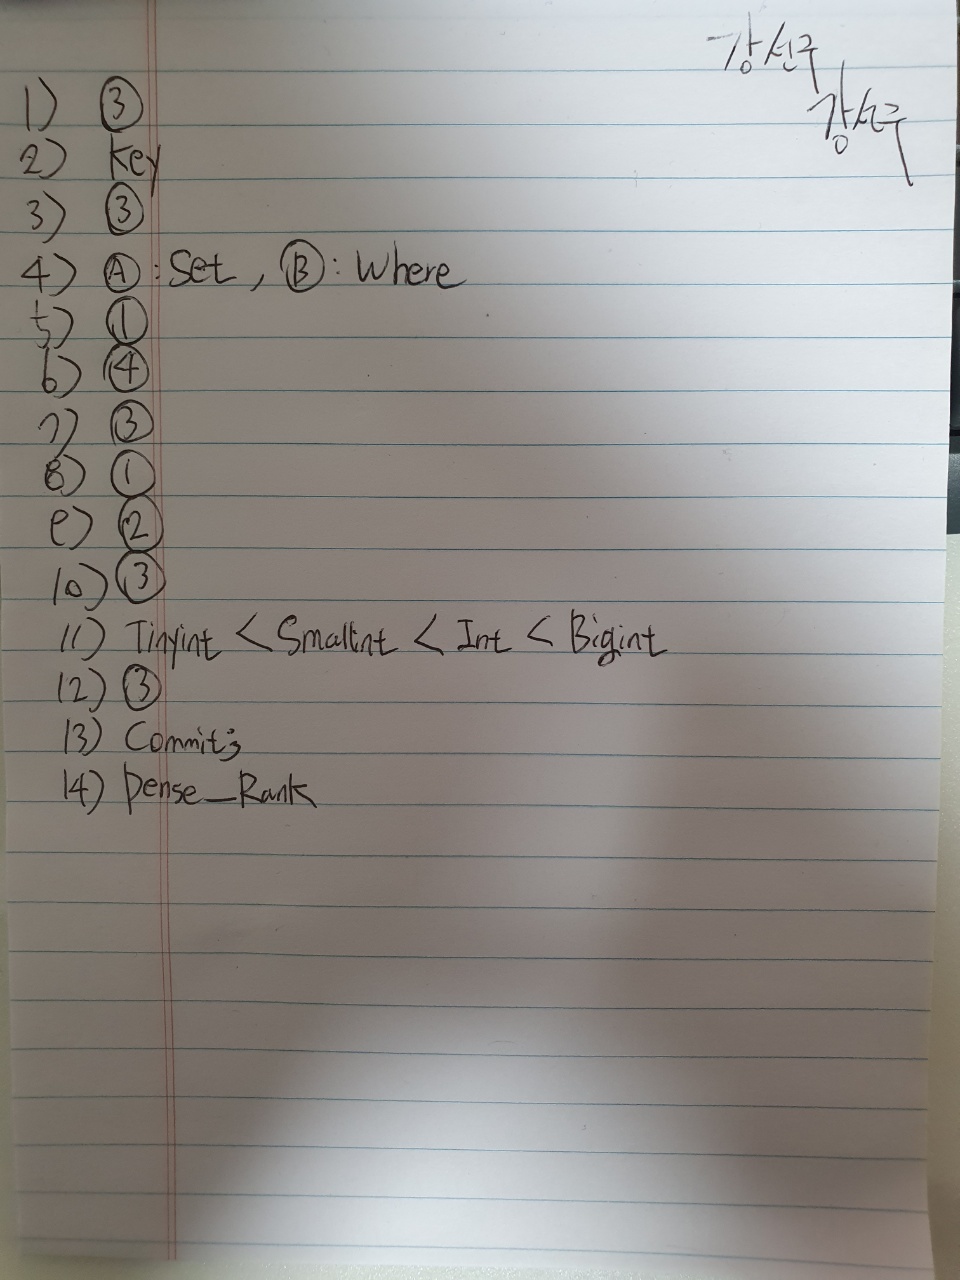 강선구
강선구
1) ③
2) Key
3) ③
4) Ⓐ : Set , Ⓑ : Where
5) ①
6) ④
7) ③
8) ①
9) ②
10) ③
11) Tinyint < Smallint < Int < Bigint
12) ③
13) Commit;
14) Dense_Rank